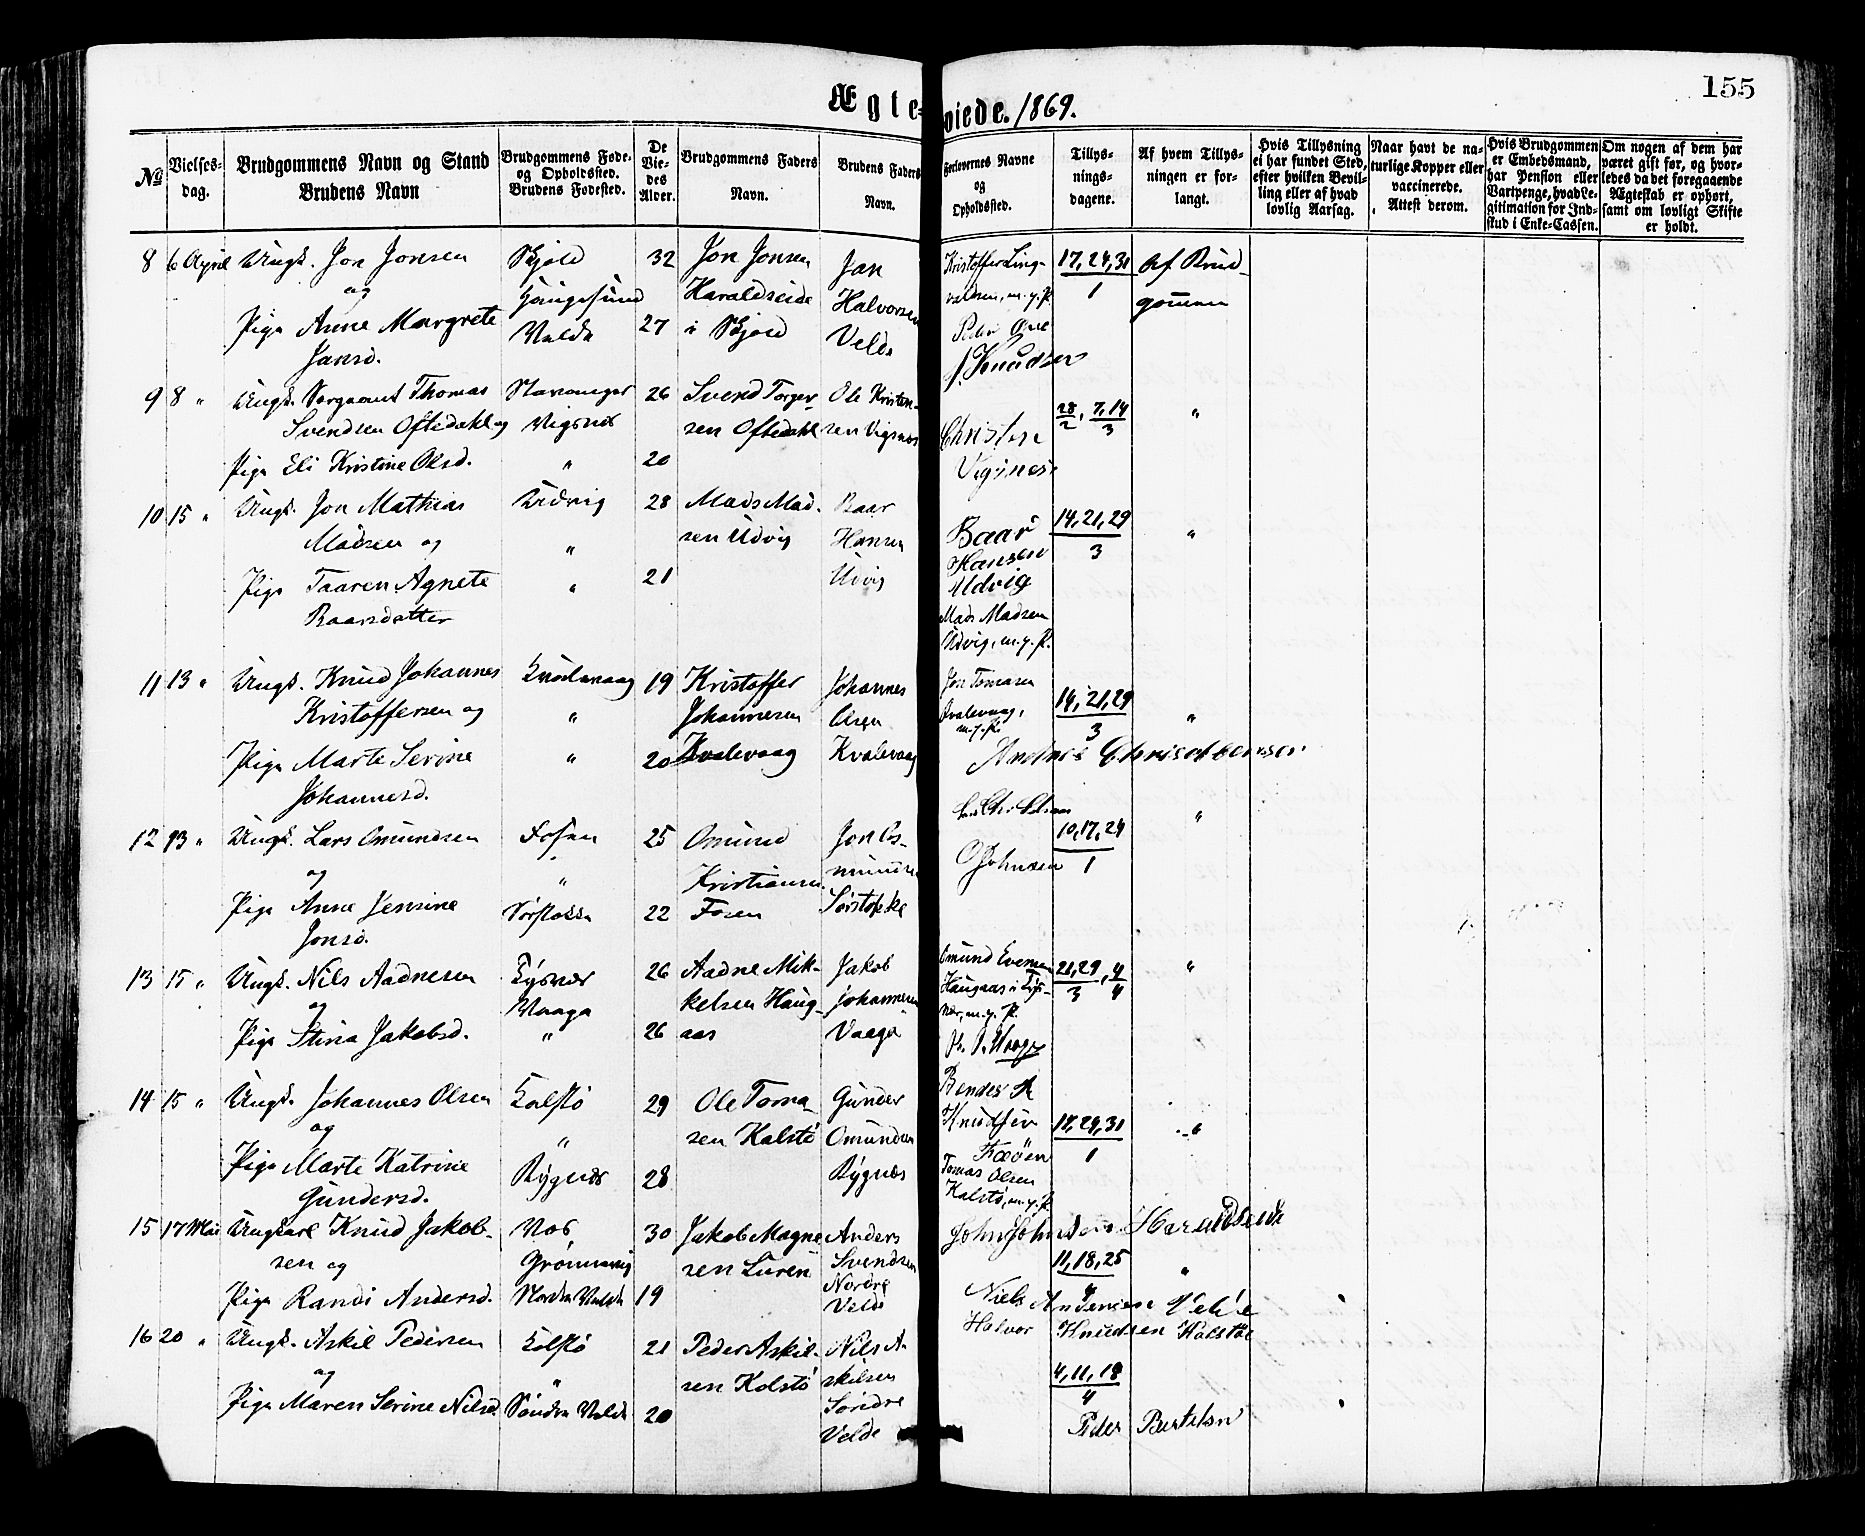 155
Ægteviede. 1869.
№
Vielses-
dag.
Brudgommens Navn og Stand
Brudens Navn
Brudgommens Føde-
og Opholdssted.
Brudens Fødested.
De
Vie-
des
Alder.
Brudgommens Faders
Navn.
Brudens Faders
Navn.
Forlovernes Navne
og
Opholdssted.
Tillys-
nings-
dagene.
Af hvem Tillys-
ningen er for-
langt.
Hvis Tillysning
ei har fundet Sted,
efter hvilken Bevil-
ling eller af hvad
lovlig Aarsag.
Naar havt de na-
turlige Kopper eller
vaccinerede.
Attest derom.
Hvis Brudgommen
er Embedsmand,
har Pension eller
Vartpenge, hvad Le-
gitimation for Ind-
skud i Enke-Cassen.
Om nogen af dem har
været gift før, og hvor-
ledes da det foregaaende
Ægteskab er ophørt,
samt om lovligt Skifte
er holdt.
8 6 April Ungk. Jon Jonsen Skjold 32 Jon Jonsen Jan Kristoffer Ling- 17, 24, 31 Af Brud-
og Haugesund Haraldseide Halvorsen m.f.P. 1 gommen
Pige Anne Margrete Valda 27 i Skjold Velde Peder
Jansd. J. Knudsen
9 8 " Ungk. Sergeant Thomas Stavanger 26 Svend Torger- Ole Kristen- 28/2, 7, 14/3 "
Svendsen Oftedahl og Vigsnes sen Oftedahl sen Vigsnes Christen
Pige Eli Kristine Olsd. " 20 Vigsnes
10 15 " Ungk. Jon Mathias Udvig 28 Mads Mad- Baar Baar 14, 21, 29 "
Madsen og " sen Udvig Hansen Hansen 3
Pige Taaren Agnete " 21 Udvig Udvig
Baarsdatter Mads Madsen
Udvig, m.f.P.
11 13 " Ungk. Knud Johannes Kvalevaag 19 Kristoffer Johannes Jon Tomasen 14, 21, 29
Kristoffersen og " Johannesen Olsen Kvalevaag, m.f.P. 3 "
Pige Marte Serine " 20 Kvalevaag Kvalevaag
Johannesd.
12 13 " Ungk. Lars Omundsen Fosen 25 Omund Jon Os- 10, 17, 24 "
og " Kristiansen mundsen O Johnsen 1
Pige Anne Jensine 22 Fosen
Jonsd.
13 15 " Ungk. Nils Aadnesen 26 Aadne Mik- Jakob Omund Evensen 21, 29/3, 4/4 "
og Vaaga kelsen Haug- Johannesen Haugaas i
Pige Stina Jakobsd. " 26 aas Vaaga m.f.P.
14 15 " Ungk. Johannes Olsen Kalstø 29 Ole Toma- Gunder
og " sen Kalstø Omundsen Knudsen 17, 24, 31 "
Pige Marte Katrine Bygnes 28 Bygnes Fæøen 1
Gundersd. Tomas Olsen
Kalstø, m.f.P.
15 17 Mai Ungkarl Knud Jakob- Vos 30 Jakob Magne- Anders John Johnsen Haraldseide
sen og Grønnevig sen Luren Svendsen 11, 18, 25 "
Pige Randi Andersd. Nordra Valda 19 Nordre 4
Velde Niels Andersen Velde
16 20 " Ungk. Askil Pedersen Kalstø 21 Peder Askil- Nils A- Halvor Knudsen Kalstøe
og " sen Kolstø skilsen 4, 11, 18
Pige Maren Serine Nilsd. Søndra Valda 20 Søndre 4
Velde Peder Bertelsen